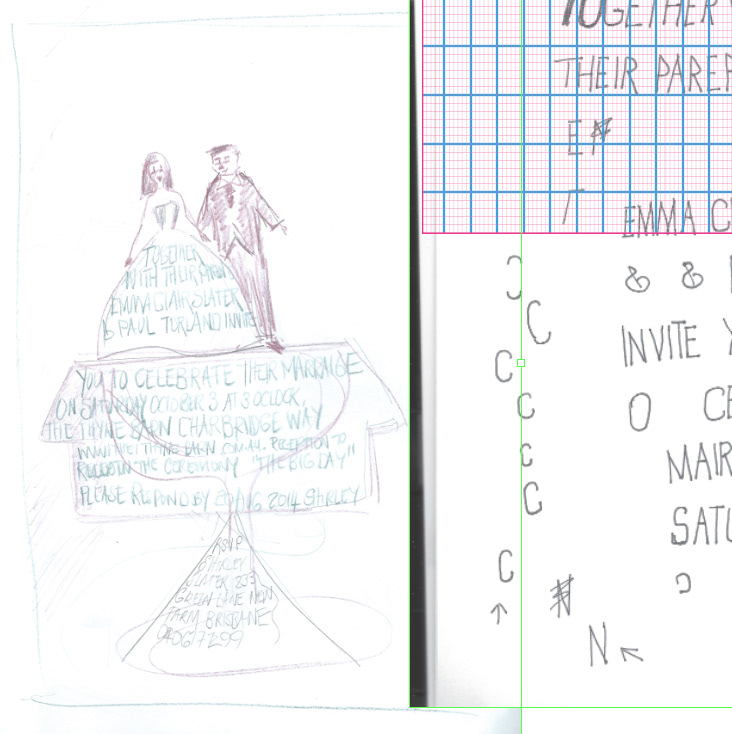 TOGETHER
WITH THEIR PARENTS
EMMA CLAIR SLATER
& PAUL TURLAND INVITE
YOU TO CELEBRATE THEIR MARRAIGE
ON SATURDAY OCTOBER 3 AT 3 OCLOCK,
THE TYTHE BARN CHARBRIDGE WAY
RECEPTION TO
THE CEREMONY "THE BIG DAY"
PLEASE RESPOND BY 20 AUG 2014 SHIRLEY
RSVP
SHIRLEY
SLATER 233
GREEN LANE NEW
FARM BRISBANE
TOGETHER
THEIR PAREP
E
T
EMMA C
& &
INVITE Y
O CE
MAIR
SATU
C
C
C
C
C
C
C
C
N